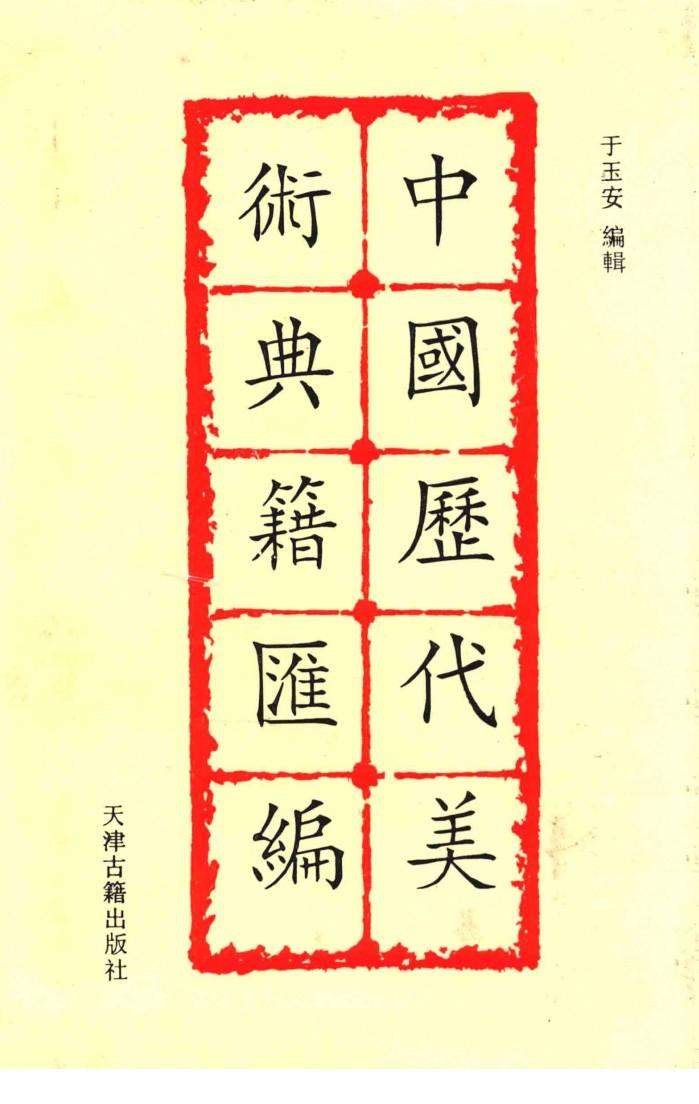 于玉安 編輯
中國歷代美
術典籍匯編
天津古籍出版社